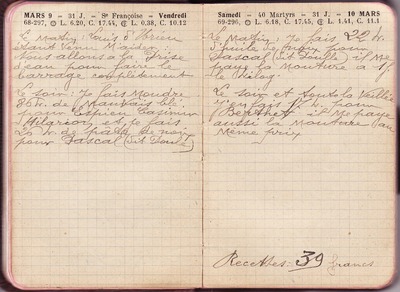 MARS 9 — 31 J. — Se Françoise — Vendredi
68-297, ☉ L. 6.20, C. 17.43, ☾ L. 0.38, C. 10.12
Le Matin, Louis d'
Saint Venu M'aider
nous allons a la Prise
d'eau pour faire le
barrage complètement
Le soir: Je fais Moudre
80 K. de Mauvais blé
pour Espieu Casimir
Hilarion et je fais
20 K. de pâte de noix
pour Pascal (dit Doule)
Samedi — 40 Martyrs — 31 J. — 10 MARS
69-296, ☉ L. 6.18, C. 17.45, ☾ L. 1.41, C. 11.1
Le Matin, Je fais 22 K.
d'huile de noix pour
Pascal (dit Doule) il Me
paye la Mouture a
le Kilog.
Le soir et toute la Veillée
j'en fais 17 K. pour
Berthet il Me paye
aussi la Mouture au
Même prix
Recettes: 39 francs